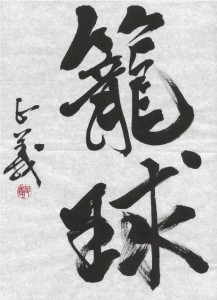 籠球
正義